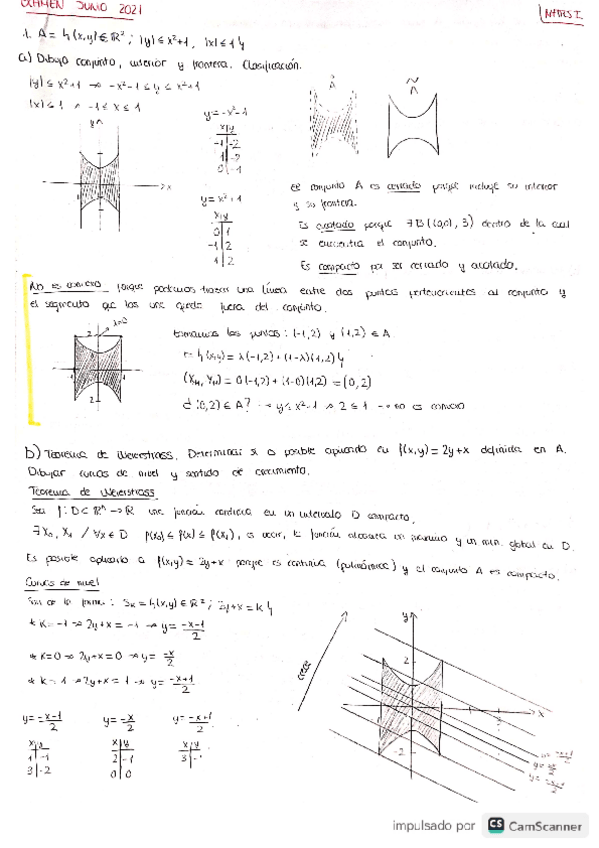 EXAMEN JUNIO 2021
MATES I
1. A = {(x,y) ∈ R²; |y| ≤ x²+1, |x| ≤ 1}
a) Dibujo conjunto, interior y frontera. Clasificación.
|y| ≤ x²+1 → -x²-1 ≤ y ≤ x²+1
|x| ≤ 1 → -1 ≤ x ≤ 1
y = -x²-1
x | y
-1 | -2
1 | -2
0 | -1
y = x²+1
x | y
0 | 1
-1 | 2
1 | 2
El conjunto A es cerrado porque incluye su interior
y su frontera.
Es acotado porque ∃ B((0,0), 3) dentro de la cual
se encuentra el conjunto.
Es compacto por ser cerrado y acotado.
No es convexo porque podemos trazar una línea entre dos puntos pertenecientes al conjunto y
el segmento que los une quede fuera del conjunto.
tomamos los puntos: (-1,2) y (1,2) ∈ A
{(x,y) = λ(-1,2) + (1-λ)(1,2)}
¿(0,2) ∈ A? → y ≤ x²-1 → 2 ≤ 1 → no es convexo
b) Teorema de Weierstrass. Determinar si es posible aplicarlo en f(x,y) = 2y+x definida en A.
Dibujar curvas de nivel y sentido de crecimiento.
Teorema de Weierstrass
Sea f: D ⊂ Rⁿ → R una función continua en un intervalo D compacto,
∃ X₀, X₁ / ∀x ∈ D f(x₀) ≤ f(x) ≤ f(x₁), es decir, la función alcanza un máximo y un mín. global en D.
Es posible aplicarlo a f(x,y) = 2y+x porque es continua (polinómica) y el conjunto A es compacto.
Curvas de nivel
Son de la forma: Sₖ = {(x,y) ∈ R²; 2y+x = k}
* k = -1 → 2y+x = -1 → y = -x-1/2
* k=0 → 2y+x = 0 → y = -x/2
* k = 1 → 2y+x = 1 → y = -x+1/2
crece
y = -x-1/2 y = -x/2 y = -x+1/2
x | y
1 | -1
3 | -2
x | y
2 | -1
0 | 0
x | y
3 | -1
impulsado por CS CamScanner